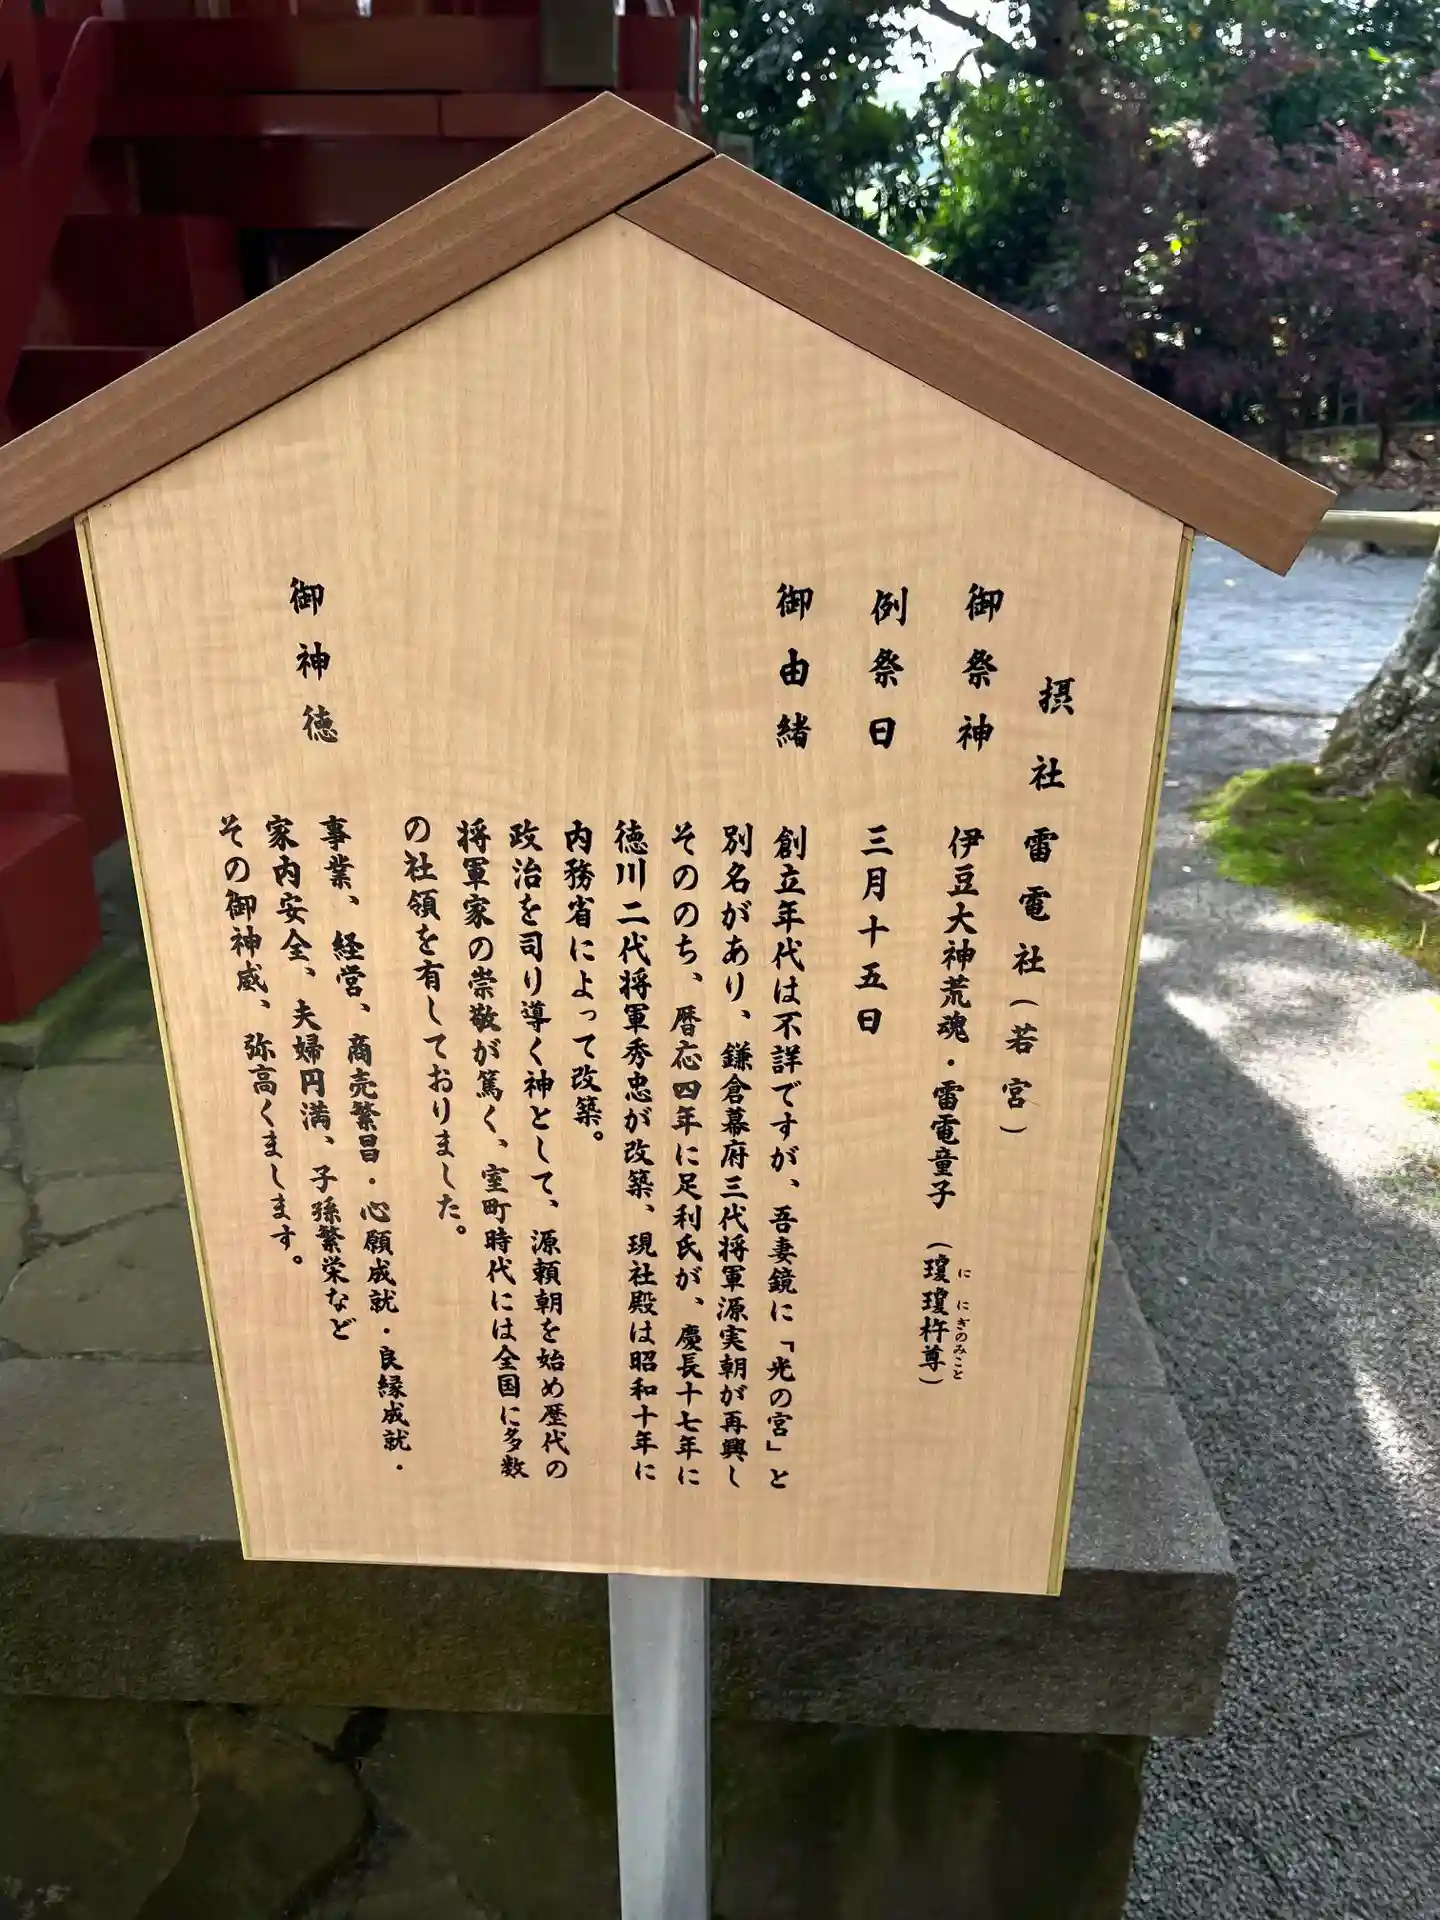 摂社 雷電社(若宮)
御祭神 伊豆大神荒魂・雷電童子(瓊瓊杵尊)
に にぎのみこと
例祭日 三月十五日
御由緒 創立年代は不詳ですが、吾妻鏡に「光の宮」と
別名があり、鎌倉幕府三代将軍源実朝が再興し
そののち、暦応四年に足利氏が、慶長十七年に
徳川二代将軍秀忠が改築、現社殿は昭和十年に
内務省によって改築。
政治を司り導く神として、源頼朝を始め歴代の
将軍家の崇敬が篤く、室町時代には全国に多数
の社領を有しておりました。
御神徳 事業、経営、商売繁昌・心願成就・良縁成就・
家内安全、夫婦円満、子孫繁栄など
その御神威、弥高くまします。